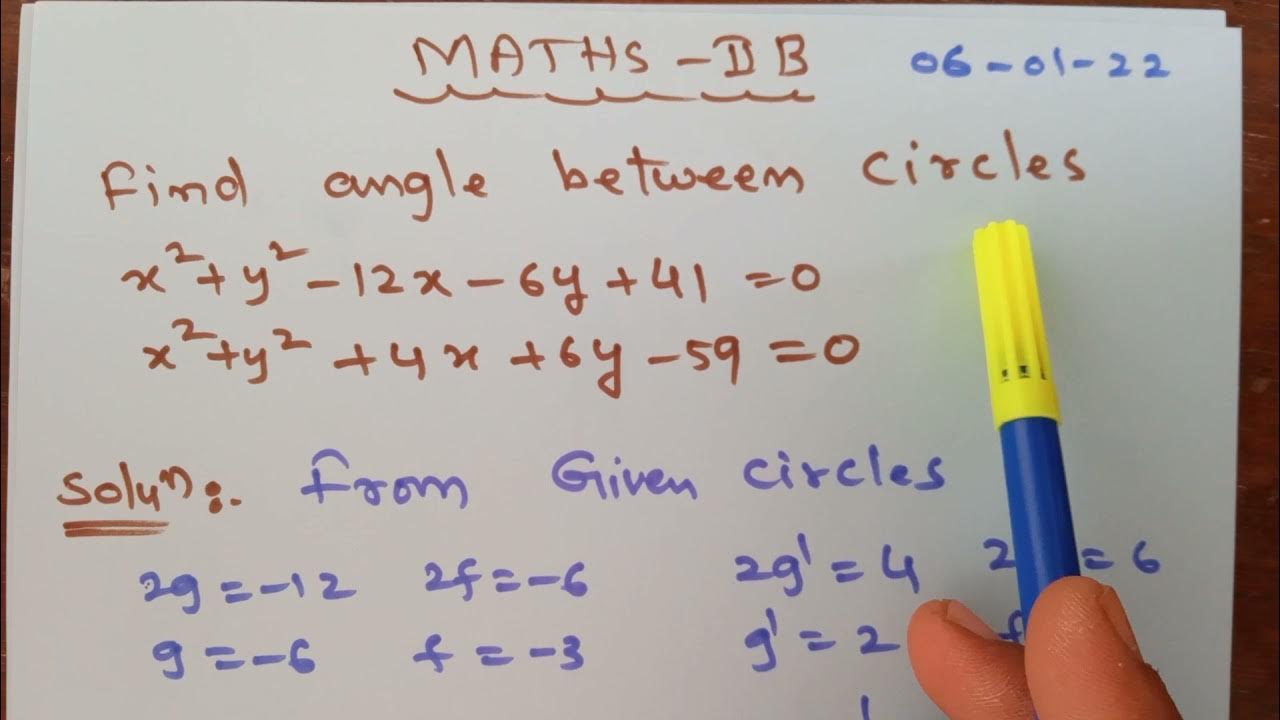 MATHS - II B 06-01-22
Find angle between circles
x²+y²-12x-6y+41=0
x²+y²+4x+6y-59=0
Soluⁿ:. From Given circles
2g=-12 2f=-6 2g'=4 2 =6
g=-6 f=-3 g'=2